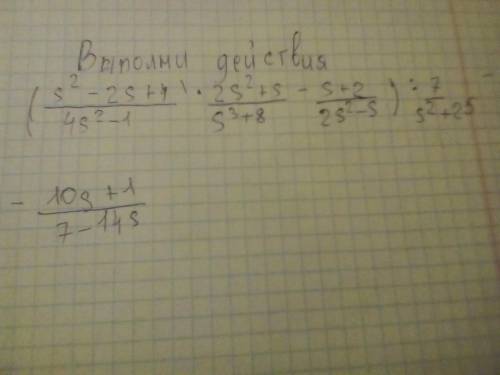 Выполни действия
( (s² - 2s + 4)/(4s² - 1) · (2s² + s)/(s³ + 8) - (s + 2)/(2s² - s) ) : 7/(s² + 2s) -
- (10s + 1)/(7 - 14s)